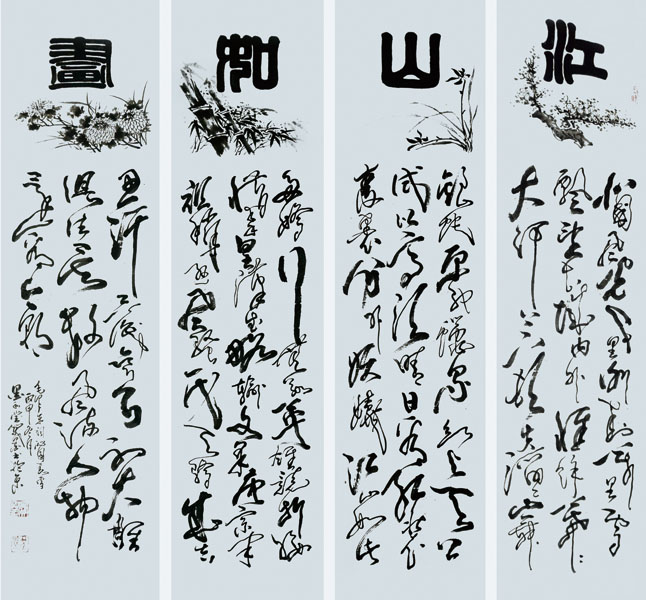 江
北國風光千里冰封萬里雪
飄望長城內外惟餘莽莽
大河上下頓失滔滔山舞
山
銀蛇原馳蠟象欲與天公
試比高須晴日看紅裝
素裹分外妖嬈江山如此
如
多嬌引無數英雄競折腰
惜秦皇漢武略輸文采唐宗宋
祖稍遜風騷一代天驕成吉
畫
思汗只識彎弓射大雕
俱往矣數風流人物
還看今朝